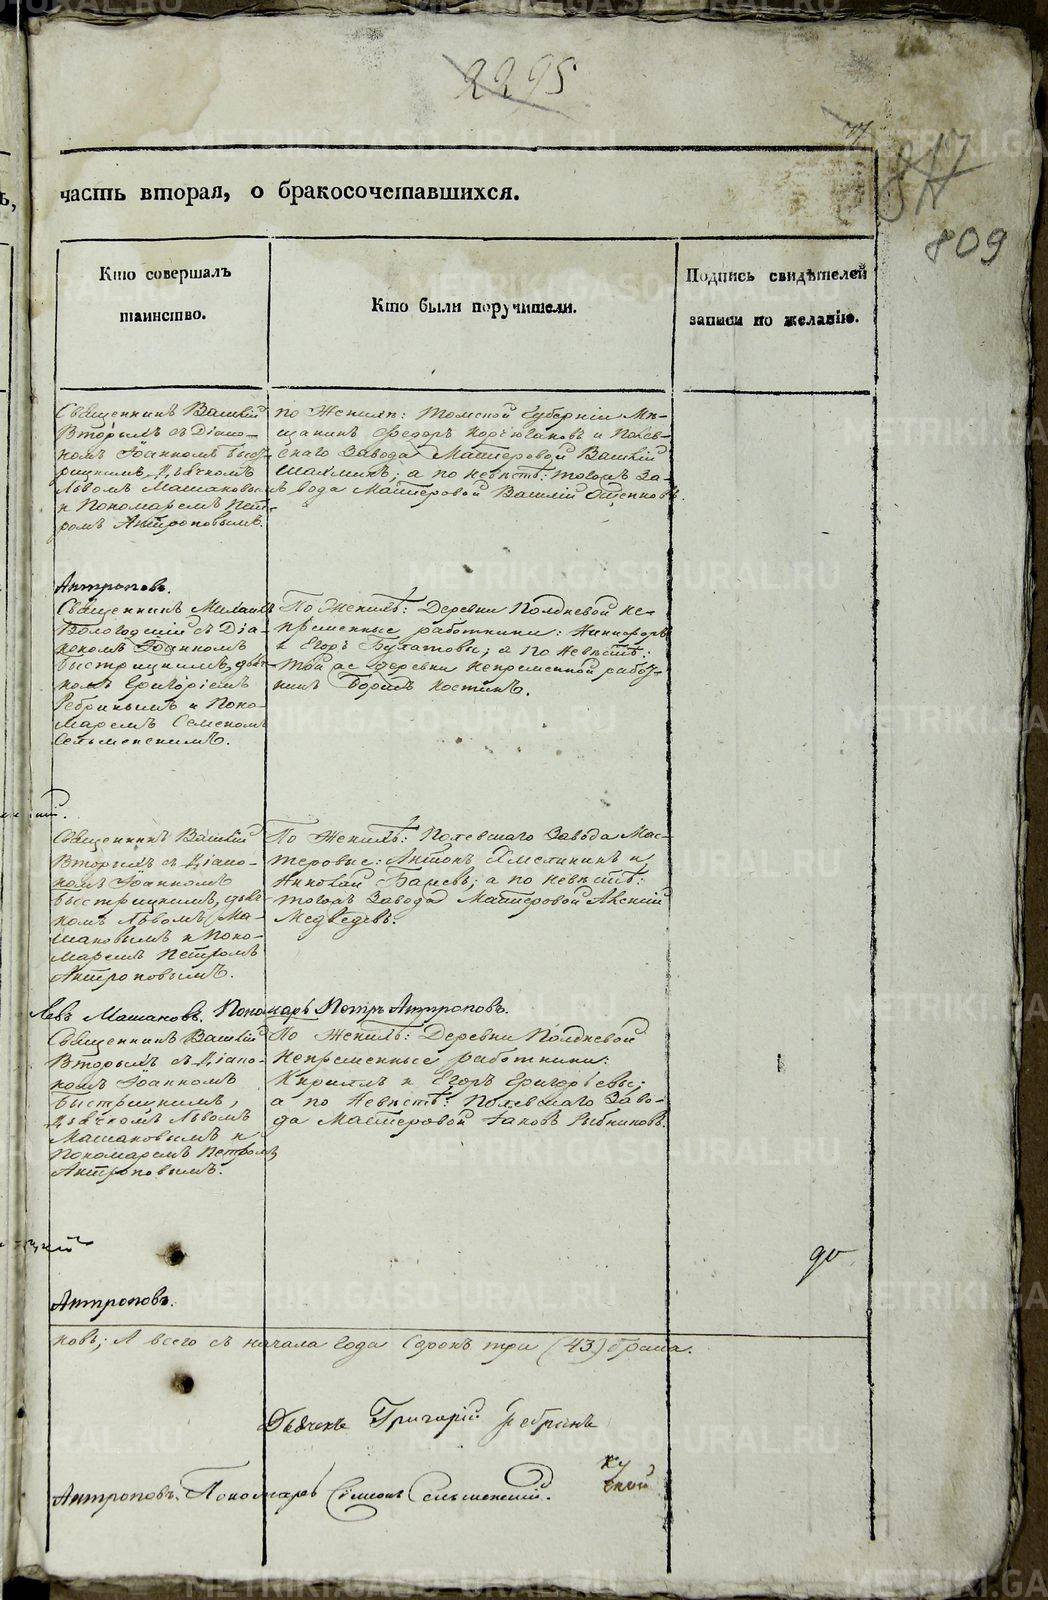 2295
809
часть вторая, о бракосочетавшихся.
Кто совершалъ
таинство.
Кто были поручители.
Подпись свидѣтелей
записи по желанію.
Священникъ Василій
Вторымъ съ Діако-
номъ Іоанномъ Быст-
рицкимъ, Дьячкомъ
Львомъ Машановымъ
и Пономаремъ Пет-
ромъ Антроповымъ.
по Женихѣ: Томской Губерніи Мѣ-
щанинъ Ѳедоръ и Полев-
скаго Завода Мастеровой Василій
Шахминъ; а по невѣстѣ: тогожъ За-
вода Мастеровой Василій
Антроповъ.
Священникъ Михаилъ
Вологодскій съ Діа-
кономъ Іоанномъ
Быстрицкимъ, дьяч-
комъ Григоріемъ
Ребринымъ и Поно-
маремъ Семеномъ
Сельменскимъ.
По Женихѣ: Деревни Полдневой не-
премѣнные работники: Никифоръ
и Егоръ Булатовы; а по Невѣстѣ:
той же деревни непремѣнной работ-
никъ Борисъ Костинъ.
Священникъ Василій
Вторымъ съ Діако-
номъ Іоанномъ
Быстрицкимъ, дьяч-
комъ Львомъ Ма-
шановымъ и Поно-
маремъ Петромъ
Антроповымъ.
По Женихѣ: Полевскаго Завода Мас-
теровые: Антонъ Хмелининъ и
Николай Баевъ; а по невѣстѣ:
тогожъ Завода Мастеровой Алексій
Медвѣдевъ.
Левъ Машановъ. Пономарь Петръ Антроповъ.
Священникъ Василій
Вторымъ съ Діако-
номъ Іоанномъ
Быстрицкимъ,
Дьячкомъ Львомъ
Машановымъ и
Пономаремъ Петромъ
Антроповымъ.
По Женихѣ: Деревни Полдневой
Непремѣнные работники:
Кириллъ и Егоръ Григорьевы;
а по Невѣстѣ: Полевскаго Заво-
да Мастеровой Яковъ Рыбниковъ.
Антроповъ.
ковъ; А всего съ начала Года Сорокъ три (43) брака.
Дьячекъ Григорій Ребринъ
Антроповъ. Пономарь Симеонъ Сельменскій.
METRIKI.GASO-URAL.RU